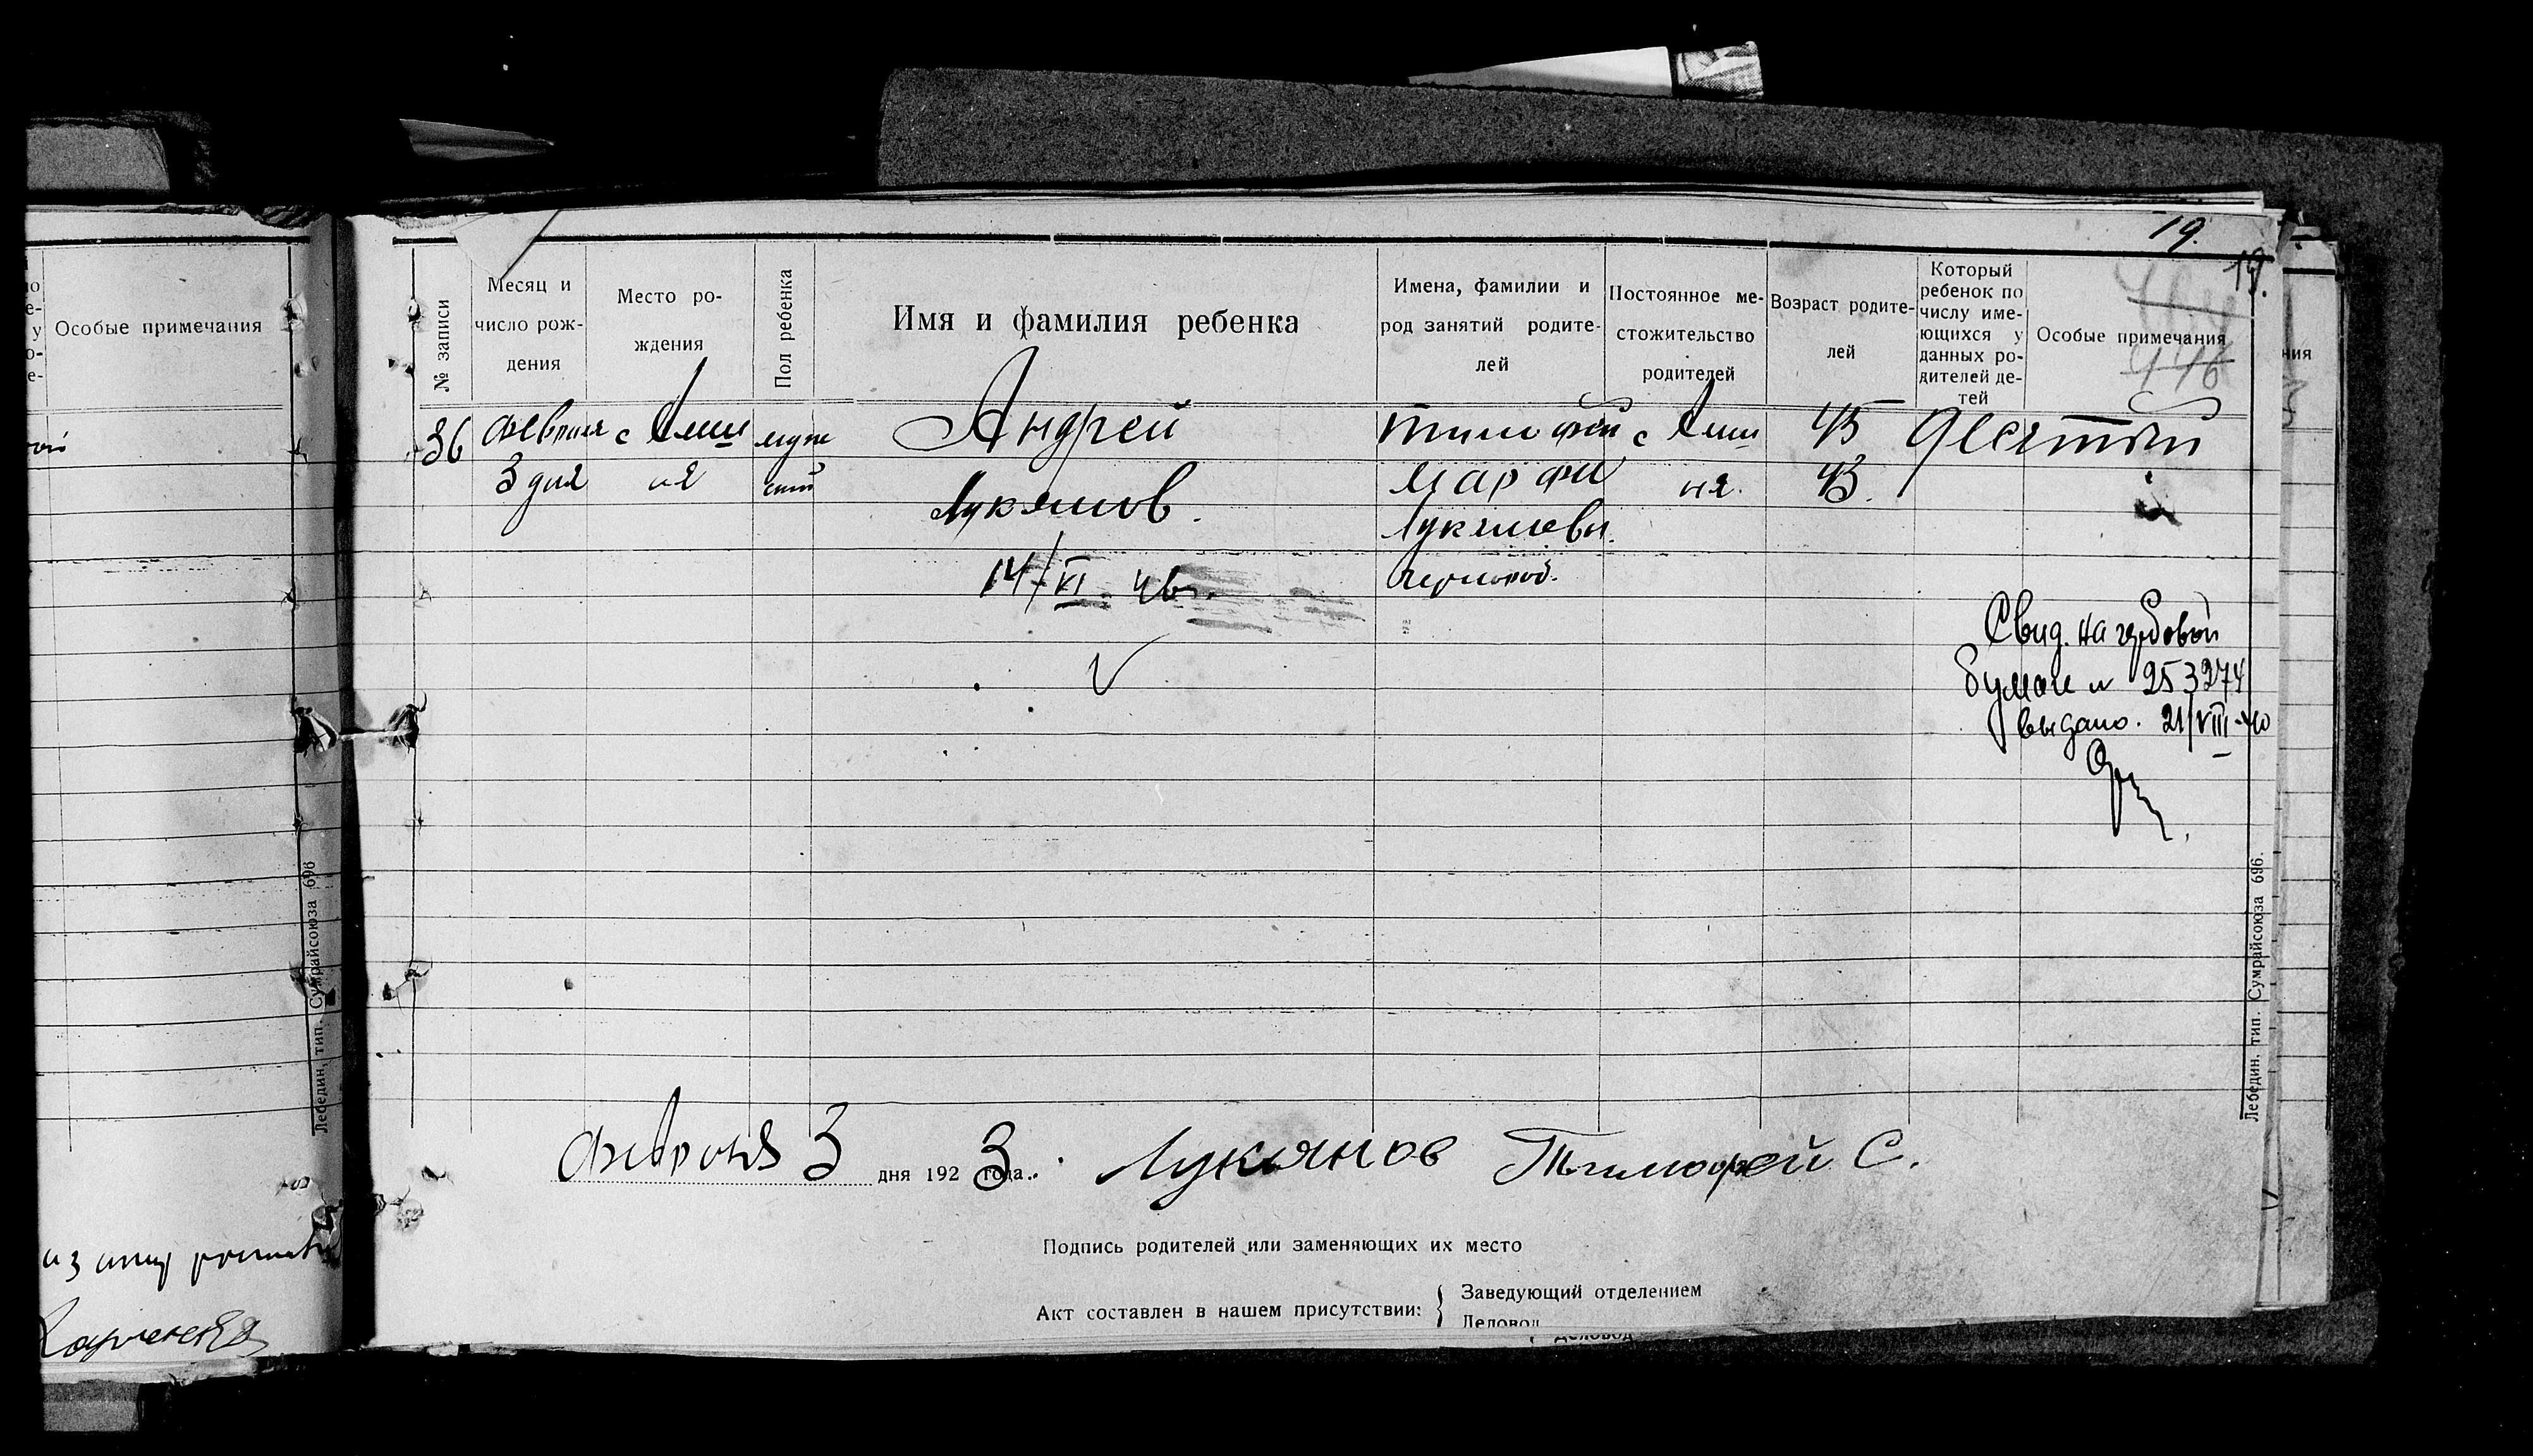 19.
19.
446
Особые примечания
№ записи
Месяц и число рождения
Место рождения
Пол ребенка
Имя и фамилия ребенка
Имена, фамилии и род занятий родителей
Постоянное местожительство родителей
Возраст родителей
Который ребенок по числу имеющихся у данных родителей детей
Особые примечания
36 февраля с Андрей Тимофей с 45 десятый
3 дня ня Лукянов. Марфа ня. 43.
Лукяновы.
14/VI 46г.
Свид. на гербовой
бумаге № 253274
выдано. 21/VIII-40
Лебедин, тип. Сумрайсоюза 696
Лебедин. тип. Сумрайсоюза 696.
февраля 3 дня 1923 года. Лукянов Тимофей С.
Подпись родителей или заменяющих их место
Акт составлен в нашем присутствии:
Заведующий отделением
Деловод
Деловод